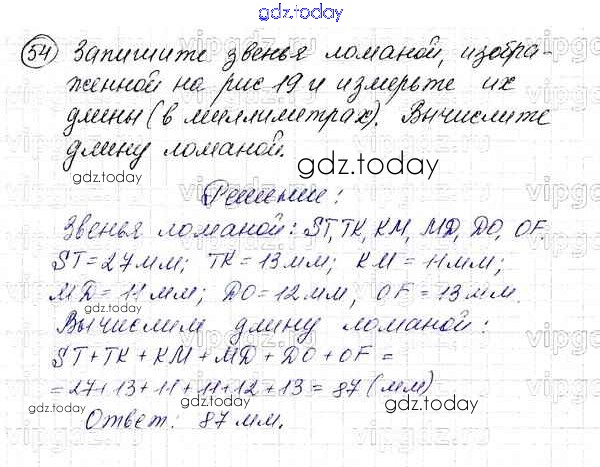 gdz.today
54 Запишите звенья ломаной, изобра-
женной на рис 19 и измерьте их
длины (в миллиметрах). Вычислите
длину ломаной.
gdz.today
Решение:
Звенья ломаной: ST, TK, KM, MD, DO, OF
ST = 27 мм; TK = 13 мм; KM = 11 мм;
MD = 11 мм; DO = 12 мм, OF = 13 мм.
Вычислим длину ломаной:
ST + TK + KM + MD + DO + OF =
= 27 + 13 + 11 + 11 + 12 + 13 = 87 (мм)
gdz.today gdz.today
Ответ: 87 мм.